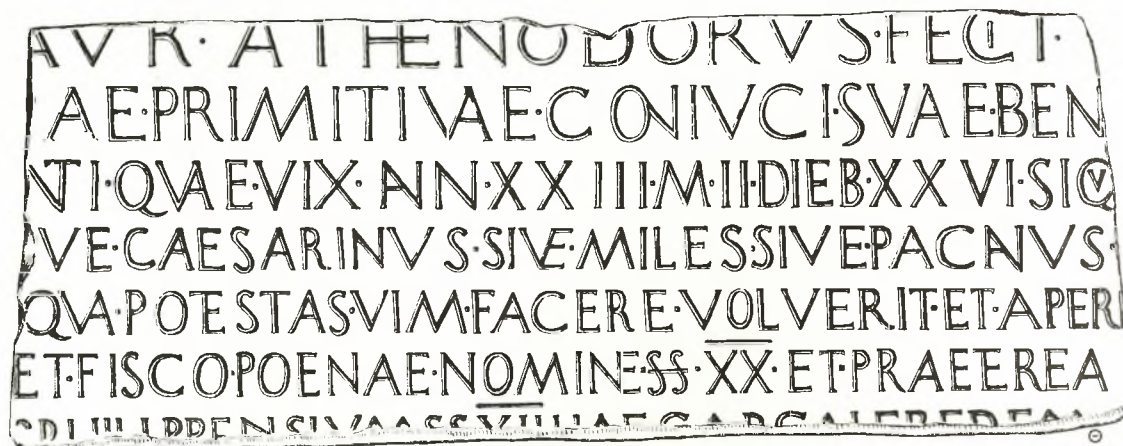 AVR·ATHENODORVS·FECIT·
AE·PRIMITIVAE·CONIVCI·SVAE·BEN
NTI·QVAE·VIX·ANN·XXIII·M·II·DIEB·XXVI·SIQV
VE·CAESARINVS·SIVE·MILESSIVE·PACNVS·
QVA·POTESTAS·VIM·FACERE·VOLVERIT·ET·APERI
ET·FISCO·POENAE·NOMINE·SS·XX·ET·PRAEEREA